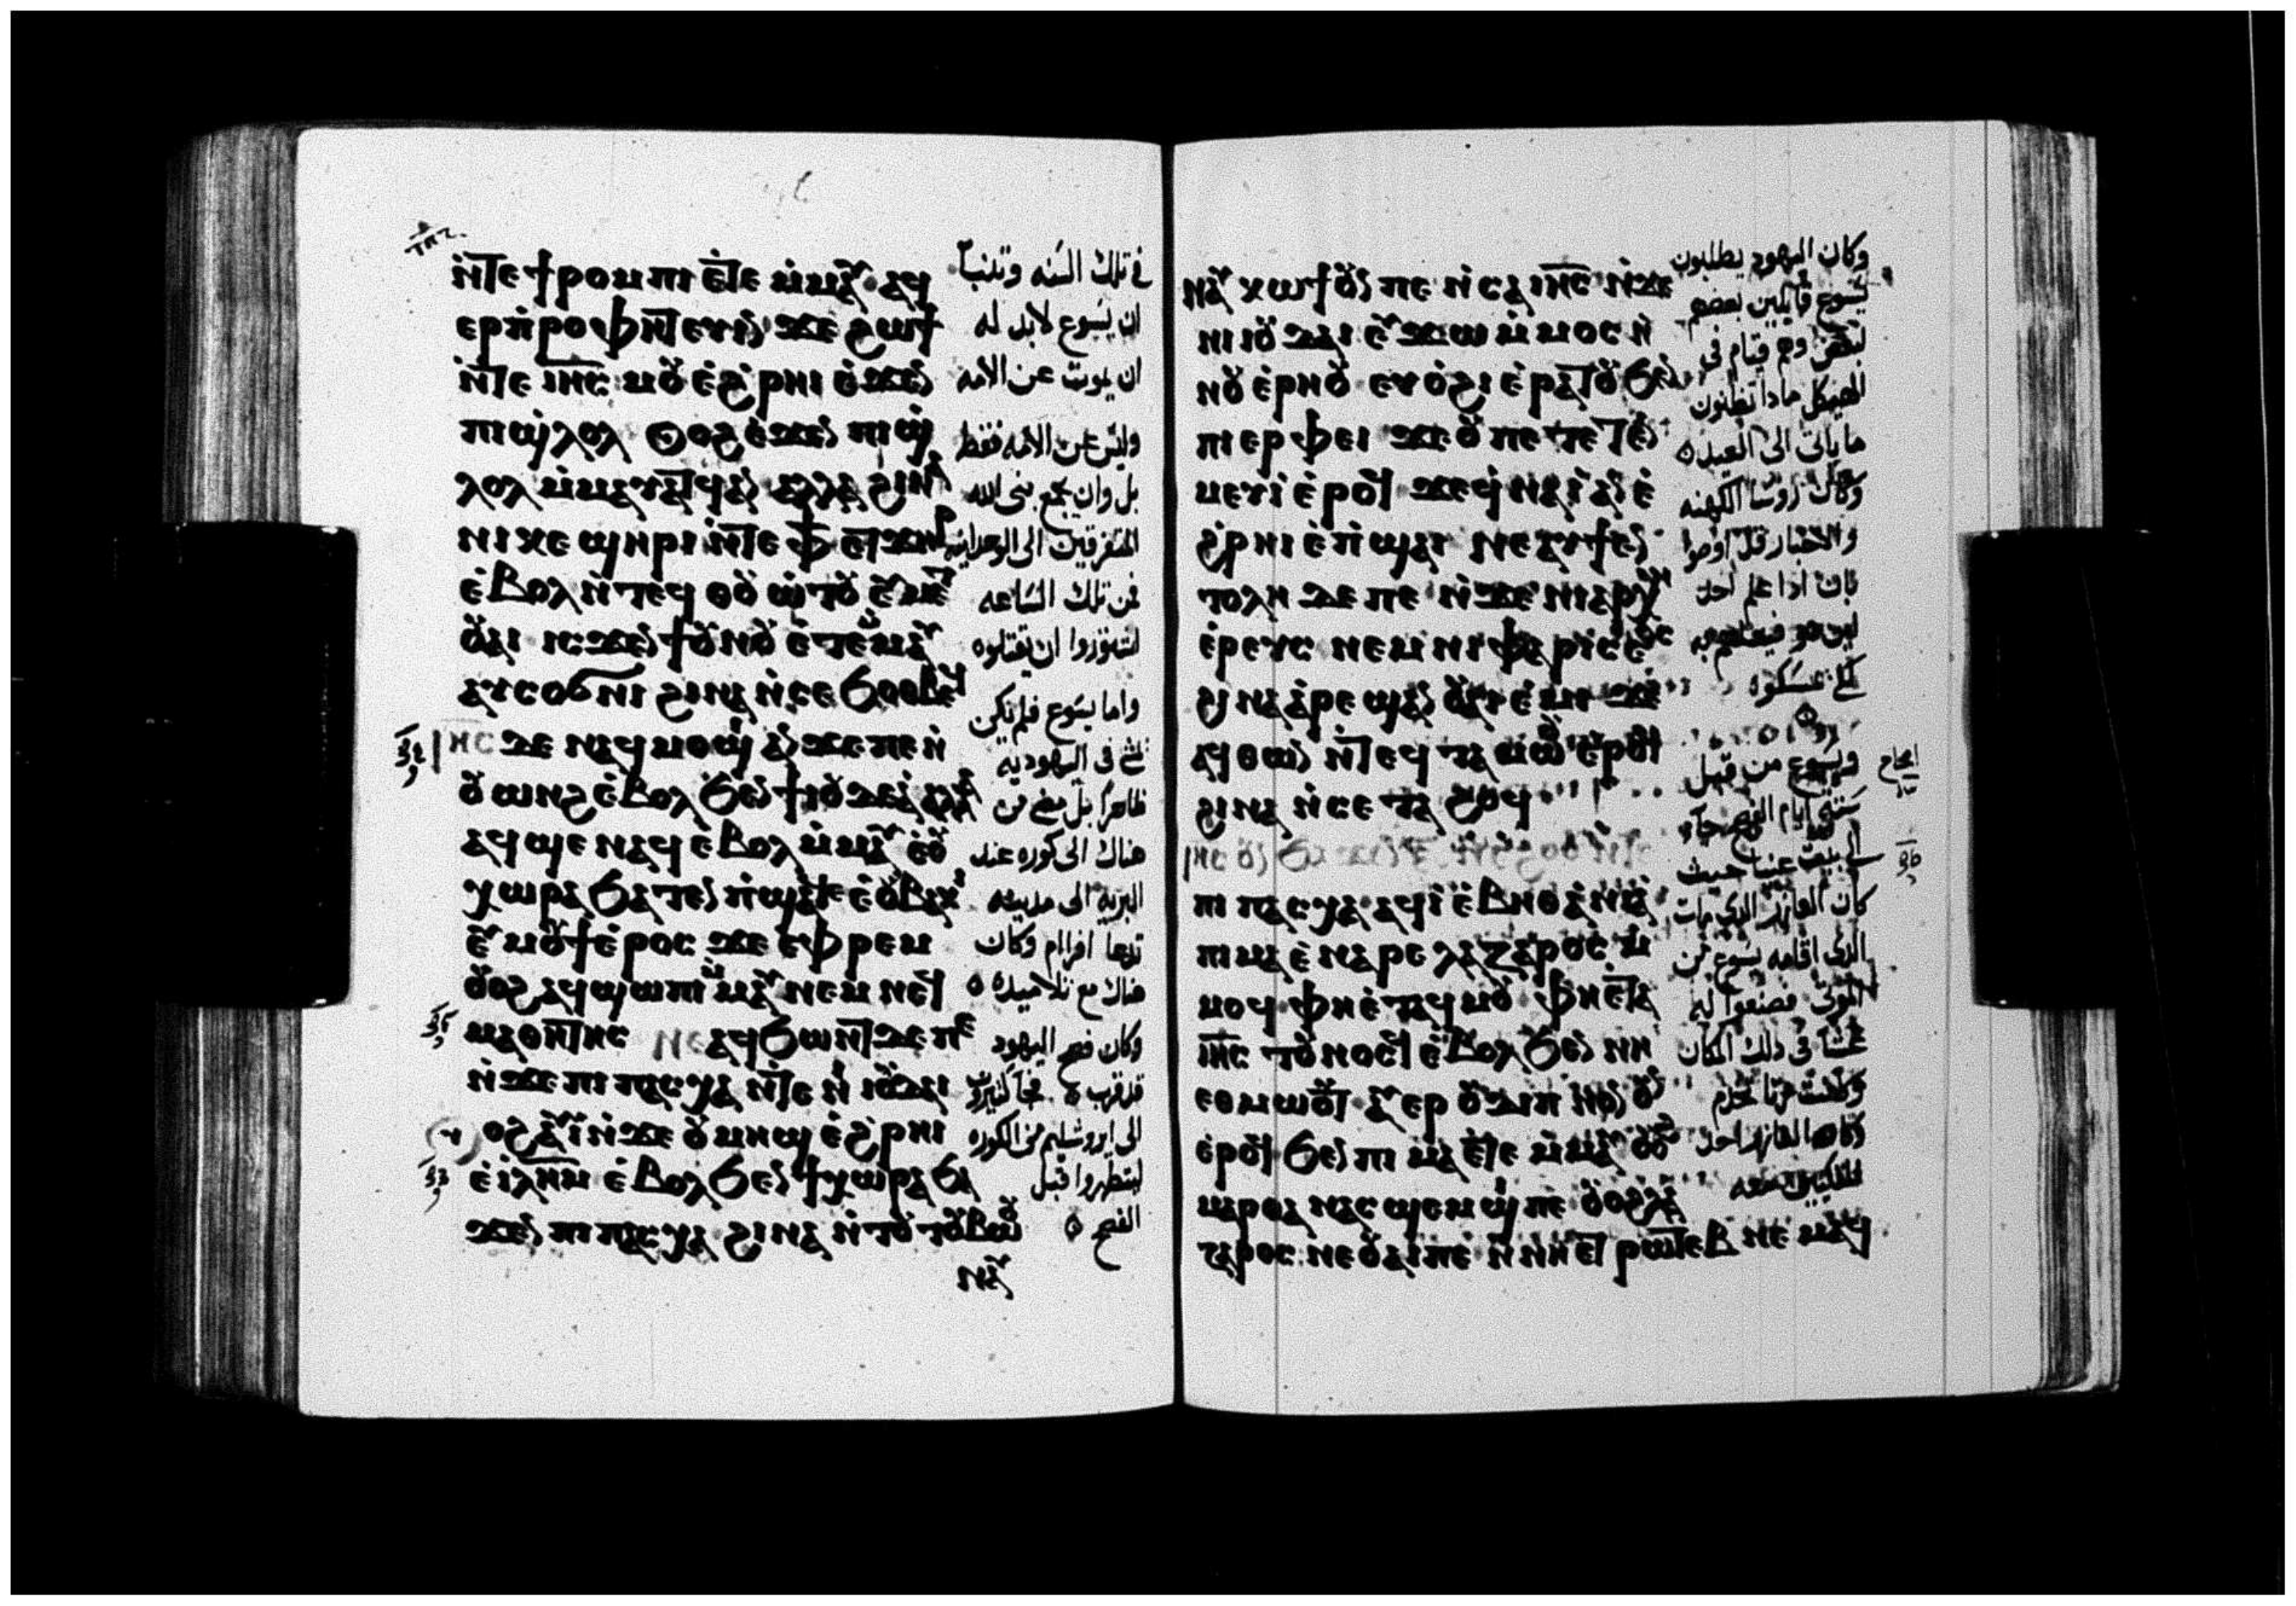 ⲛ̇ⲧⲉ ϯⲣⲟⲙⲡⲓ ⲉ̇ⲧⲉ ⲙ̇ⲙⲁⲩ ⲁϥ
ⲉⲣⲡ̇ⲣⲟⲫⲏⲧⲉⲩⲓⲛ ϫⲉ ϩⲱϯ
ⲛ̇ⲧⲉ ⲓⲏ̅ⲥ̅ ⲙⲟⲩ ⲉ̇ϩ̇ⲣⲏⲓ ⲉ̇ϫⲉⲛ
ⲡⲓϣ̇ⲗⲟⲗ ⲟⲩⲟϩ ⲉ̇ϫⲉⲛ ⲡⲓϣ̇
ⲗⲟⲗ ⲙ̇ⲙⲁⲩⲁⲧϥ ⲁⲛ ⲁⲗⲗⲁ ϩⲓⲛⲁ
ⲛⲓⲕⲉ ϣⲏⲣⲓ ⲛ̇ⲧⲉ ⲫϯ ⲉⲧϫⲏⲣ
ⲉ̇ⲃⲟⲗ ⲛ̇ⲧⲉϥ ⲑⲟⲩⲱⲧⲟⲩ ⲉⲩⲙⲉⲧ
ⲟⲩⲁⲓ ⲓⲥϫⲉⲛ ϯⲟⲩⲛⲟⲩ ⲉ̇ⲧⲉⲙⲙⲁⲩ
ⲁⲩⲥⲟϭⲛⲓ ϩⲓⲛⲁ ⲛ̇ⲥⲉ ϧⲟⲑⲃⲉϥ
ⲓⲏⲥ ⲇⲉ ⲛⲁϥⲙⲟϣⲓ ⲁⲛ ϫⲉ ⲡⲉ ⲛ̇
ⲟⲩⲱⲛϩ ⲉ̇ⲃⲟⲗ ϧⲉⲛ ϯⲓⲟⲩⲇⲉⲁ̇ ⲁⲗⲗⲁ
ⲁϥϣⲉ ⲛⲁϥ ⲉ̇ⲃⲟⲗ ⲙ̇ⲙⲁⲩ ⲉ̇ⲟⲩ
ⲭⲱⲣⲁ ϧⲁⲧⲉⲛ ⲡ̇ϣⲁϥⲉ ⲉ̇ⲟⲩⲃⲁⲕⲓ
ⲉⲩⲙⲟⲩϯ ⲉ̇ⲣⲟⲥ ϫⲉ ⲉ̇ⲫⲣⲉⲙ
ⲟⲩⲟϩ ⲁϥϣⲱⲡⲓ ⲙ̇ⲙⲁⲩ ⲛⲉⲙ ⲛⲉϥ
ⲙⲁⲑⲏⲧⲏⲥ ⲛⲁϥϧⲱⲛⲧ ⲇⲉ ⲡⲉ
ⲛ̇ϫⲉ ⲡⲓⲡⲁⲥⲭⲁ ⲛ̇ⲧⲉ ⲛⲓⲓⲟⲩⲇⲁⲓ
ⲟⲩⲟϩ ⲁⲩⲓ̇ ⲛ̇ϫⲉ ⲟⲩⲙⲏϣ ⲉ̇ϩ̇ⲣⲏⲓ
ⲉ̇ⲓⲗⲏⲙ ⲉ̇ⲃⲟⲗ ϧⲉⲛ ϯⲭⲱⲣⲁ ϧⲁ
ϫⲉⲛ ⲡⲓⲡⲁⲥⲭⲁ ϩⲓⲛⲁ ⲛ̇ⲧⲟⲩ ⲧⲟⲩⲃⲱⲟⲩ
ⲛⲁⲩ
في تلك السنه وتنبا
ان يسوع لابد له
ان يموت عن الامه
وليس عن الامه فقط
بل وان يجمع بنى الله
المتفرقين الى الوحدانيه
فمن تلك الساعه
اشتوروا ان يقتلوه
واما يسوع فلم يكن
يمشي فى اليهوديه
ظاهرا بل مضى من
هناك الى كوره عند
البريه الى مدينه
تدعا افرام وكان
هناك مع تلاميذه
وكان فصح اليهود
قد قرب فجا كثيرون
الى ايروشليم من الكوره
ليتطهروا قبل
الفصح
ⲛⲁⲩ ⲕⲱϯ ⲟⲩⲛ ⲡⲉ ⲛ̇ⲥⲁ ⲓⲏ̅ⲥ̅ ⲛ̇ϫⲉ
ⲛⲓⲓⲟⲩⲇⲁⲓ ⲉⲩϫⲱ ⲙ̇ⲙⲟⲥ ⲛ̇
ⲛⲟⲩ ⲉ̇ⲣⲏⲟⲩ ⲉⲩⲟ̇ϩⲓ ⲉ̇ⲣⲁⲧⲟⲩ ϧⲉⲛ
ⲡⲓⲉⲣⲫⲉⲓ ϫⲉ ⲟⲩ ⲡⲉⲧⲉⲧⲉⲛ
ⲙⲉⲩⲓ̇ ⲉ̇ⲣⲟϥ ϫⲉ ϥ̇ⲛⲁⲓ̇ ⲁⲛ ⲉ̇
ϩ̇ⲣⲏⲓ ⲉ̇ⲡ̇ϣⲁⲓ ⲛⲉ ⲁⲩϯⲉⲛ
ⲧⲟⲗⲏ ⲇⲉ ⲡⲉ ⲛ̇ϫⲉ ⲛⲓⲁⲣⲭⲏ
ⲉ̇ⲣⲉⲩⲥ ⲛⲉⲙ ⲛⲓⲫⲁⲣⲓⲥⲉⲟⲥ
ϩⲓⲛⲁ ⲁ̇ⲣⲉϣⲁⲛ ⲟⲩⲁⲓ ⲉ̇ⲙⲓ ϫⲉ
ⲁϥⲑⲱⲛ ⲛ̇ⲧⲉϥ ⲧⲁⲙⲱⲟⲩ ⲉ̇ⲣⲟϥ
ϩⲓⲛⲁ ⲛ̇ⲥⲉ ⲧⲁϩⲟϥ
ⲓⲏⲥ ⲟⲩⲛ ϧⲁϫⲉⲛ
ⲡⲓⲡⲁⲥⲭⲁ ⲁϥⲓ̇ ⲉ̇ⲃⲏⲑⲁ̇ⲛⲓⲁ̇
ⲡⲓⲙⲁ ⲉ̇ⲛⲁⲣⲉ ⲗⲁⲍⲁⲣⲟⲥ ⲙ̇
ⲙⲟϥ ⲫⲏⲉ̇ⲧⲁϥⲙⲟⲩ ⲫⲏⲉ̇ⲧⲁ
ⲓⲏ̅ⲥ̅ ⲧⲟⲩⲛⲟⲥϥ ⲉ̇ⲃⲟⲗ ϧⲉⲛ ⲛⲏ
ⲉⲑⲙⲱⲟⲩⲧ ⲁⲩⲉⲣ ⲟⲩⲇⲓⲡⲛⲟⲛ ⲟⲩⲛ
ⲉ̇ⲣⲟϥ ϧⲉⲛ ⲡⲓⲙⲁ ⲉ̇ⲧⲉ ⲙ̇ⲙⲁⲩ ⲟⲩⲟϩ
ⲙⲁⲣⲑⲁ ⲛⲁⲥϣⲉⲙϣⲓ ⲡⲉ ⲟⲩⲟϩ ⲗⲁ
ⲍⲁⲣⲟⲥ ⲛⲉ ⲟⲩⲁⲓ ⲡⲉ ⲛ̇ⲛⲏⲉⲧ ⲣⲱⲧⲉⲃ ⲛⲉⲙⲁϥ
وكان اليهود يطلبون
يسوع قايلين بعضهم
لبعض وهم قيام فى
الهيكل ماذا تظنون
ما ياتى الى العيد
وكان روسا الكهنه
والاحبار قد اوصوا
بان اذا علم احد
اين هو فيعلمهم به
لكى يمسكوه
ويسوع من قبل
ستة ايام الفصح جآء
الى بيت عنيا حيث
كان العازر الذى مات
الذى اقامه يسوع من
الموتى فصنعوا له
عشا فى ذلك المكان
وكانت مرتا تخدم
وكان العازر احد
المتكيين معه